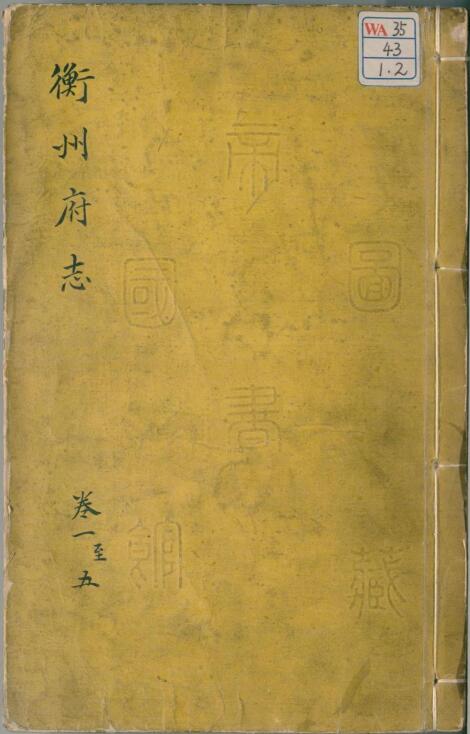 衡州府志
卷一至五
WA 35
43
1.2
帝
國
圖
書
館
藏